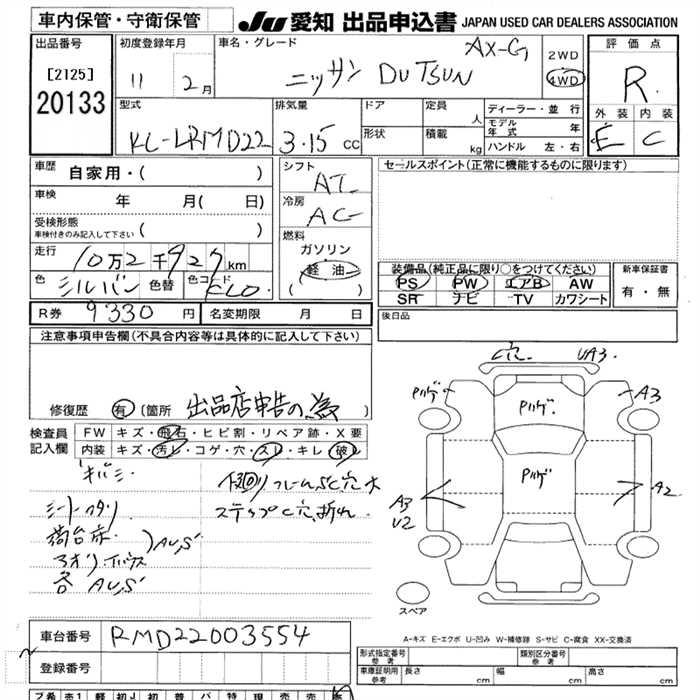 車内保管・守衛保管
JU 愛知 出品申込書 JAPAN USED CAR DEALERS ASSOCIATION
出品番号
[2125]
20133
初度登録年月
11 2月
車名・グレード
ニッサン DUTSUN AX-G
2WD
4WD
評価点
R
外装 内装
E C
型式
KC-LRMD22
排気量
3.15 CC
ドア
形状
定員
人
積載
kg
ディーラー・並行
モデル年式 年
ハンドル 左・右
車歴
自家用・( )
車検
年 月( 日)
受検形態
車検付きのみ記入して下さい ( )
走行
10万2千927km
色
シルバー 色替 色コード CL0
シフト
AT
冷房
AC
燃料
ガソリン
軽油
( )
セールスポイント(正常に機能するものに限ります)
装備品(純正品に限り○をつけてください)
PS PW エアB AW
SR ナビ TV カワシート
新車保証書
有・無
R券 9330円 名変期限 月 日
後日品
注意事項申告欄(不具合内容等は具体的に記入して下さい)
修復歴 有(箇所 出品店申告の為)
検査員
記入欄
FW キズ・飛石・ヒビ割・リペア跡・X要
内装 キズ・汚レ・コゲ・穴・スレ・キレ・破レ
キバミ
シートヘタリ
荷台床
アオリ
各 AU,S
)AU,S
下回りフレームSC穴大
ステップC穴,折れ
C穴 UA3
Pハゲ
Pハゲ
Pハゲ
A3
A3
U2
A2
スペア
A-キズ E-エクボ U-凹み W-補修跡 S-サビ C-腐食 XX-交換済
車台番号 RMD22003554
登録番号
形式指定番号
参考
類別区分番号
参考
車庫証明用
参考
長さ cm 幅 cm 高さ cm